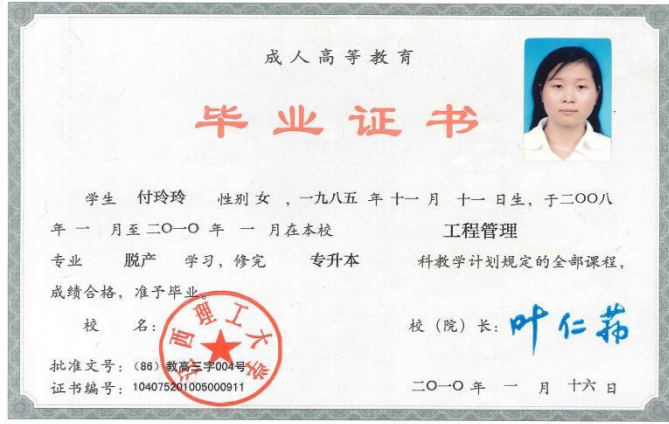 成人高等教育
毕业证书
学生 付玲玲 性别 女 ，一九八五 年 十一 月 十一 日生，于二〇〇八
年 一 月至二〇一〇 年 一 月在本校 工程管理
专业 脱产 学习，修完 专升本 科教学计划规定的全部课程，
成绩合格，准予毕业。
校 名： 江西理工大学
校（院）长：叶仁荪
批准文号：（86）教高三字004号
证书编号：104075201005000911
二〇一〇 年 一 月 十六 日